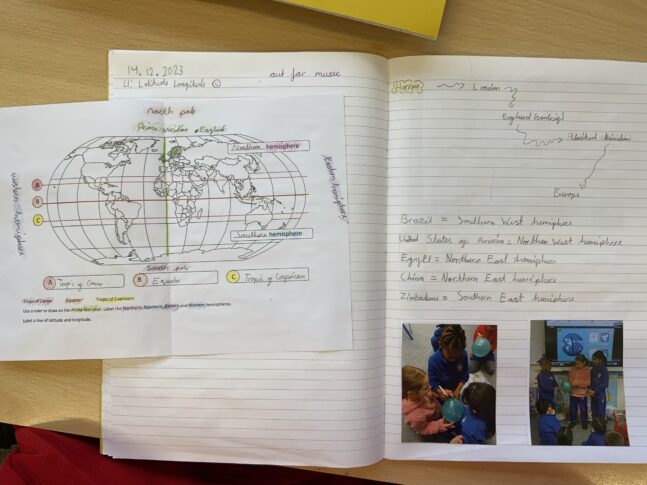 14.12.2023
LI: Latitude Longitude
out for music
North pole
Prime
Northern hemisphere
A
B
C
Southern hemisphere
South pole
A Tropic of
B Equator
C Tropic of Capricorn
Tropic of Cancer Equator Tropic of Capricorn
Use a ruler to draw on the Prime Meridian. Label the Northern, Southern, Eastern and Western hemispheres.
Label a line of latitude and longitude.
London
Europe
Brazil = Southern West hemisphere
United States of America = Northern West hemisphere
Egypt = Northern East hemisphere
China = Northern East hemisphere
Zimbabwe = Southern East hemisphere